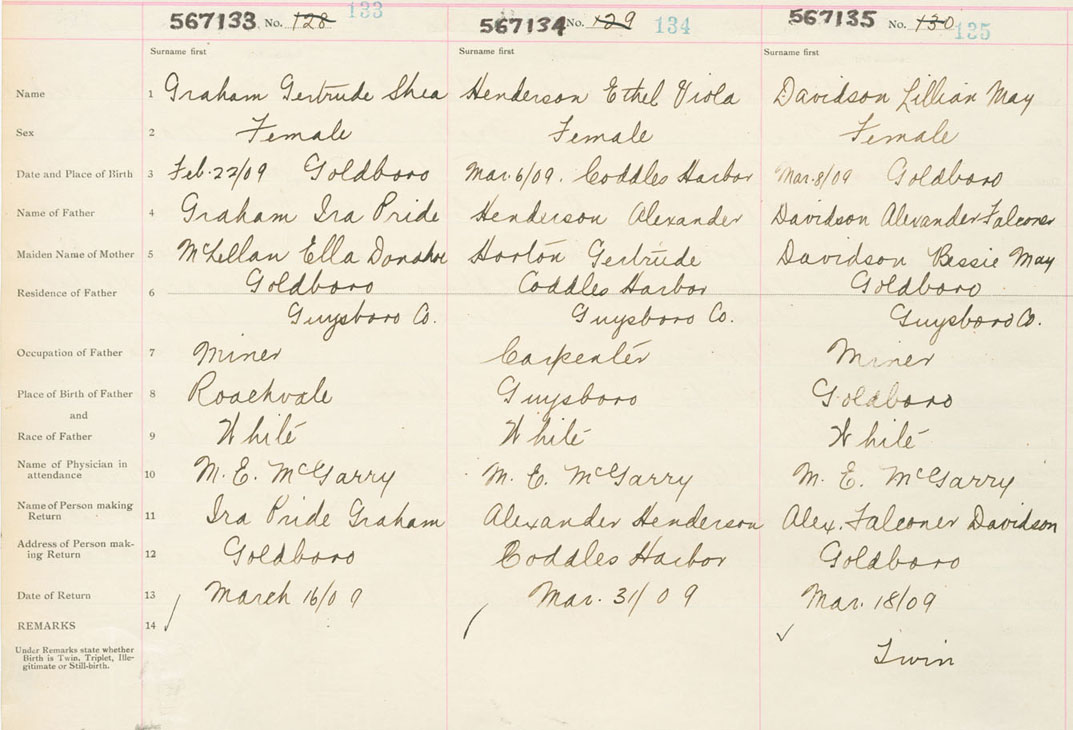 567133 No. 128 133 567134 No. 129 134 567135 No. 130 135
Surname first Surname first Surname first
Name 1 Graham Gertrude Shea Henderson Ethel Viola Davidson Lillian May
Sex 2 Female Female Female
Date and Place of Birth 3 Feb. 22/09 Goldboro Mar. 6/09. Coddles Harbor Mar. 8/09 Goldboro
Name of Father 4 Graham Ira Pride Henderson Alexander Davidson Alexander Falconer
Maiden Name of Mother 5 McLellan Ella Donahoe Horton Gertrude Davidson Bessie May
Residence of Father 6 Goldboro Coddles Harbor Goldboro
Guysboro Co. Guysboro Co. Guysboro Co.
Occupation of Father 7 Miner Carpenter Miner
Place of Birth of Father 8 Roachvale Guysboro Goldboro
and
Race of Father 9 White White White
Name of Physician in
attendance 10 M. E. McGarry M. E. McGarry M. E. McGarry
Name of Person making
Return 11 Ira Pride Graham Alexander Henderson Alex. Falconer Davidson
Address of Person mak-
ing Return 12 Goldboro Coddles Harbor Goldboro
Date of Return 13 March 16/09 Mar. 31/09 Mar. 18/09
REMARKS 14
Under Remarks state whether
Birth is Twin, Triplet, Ille-
gitimate or Still-birth.
Twin